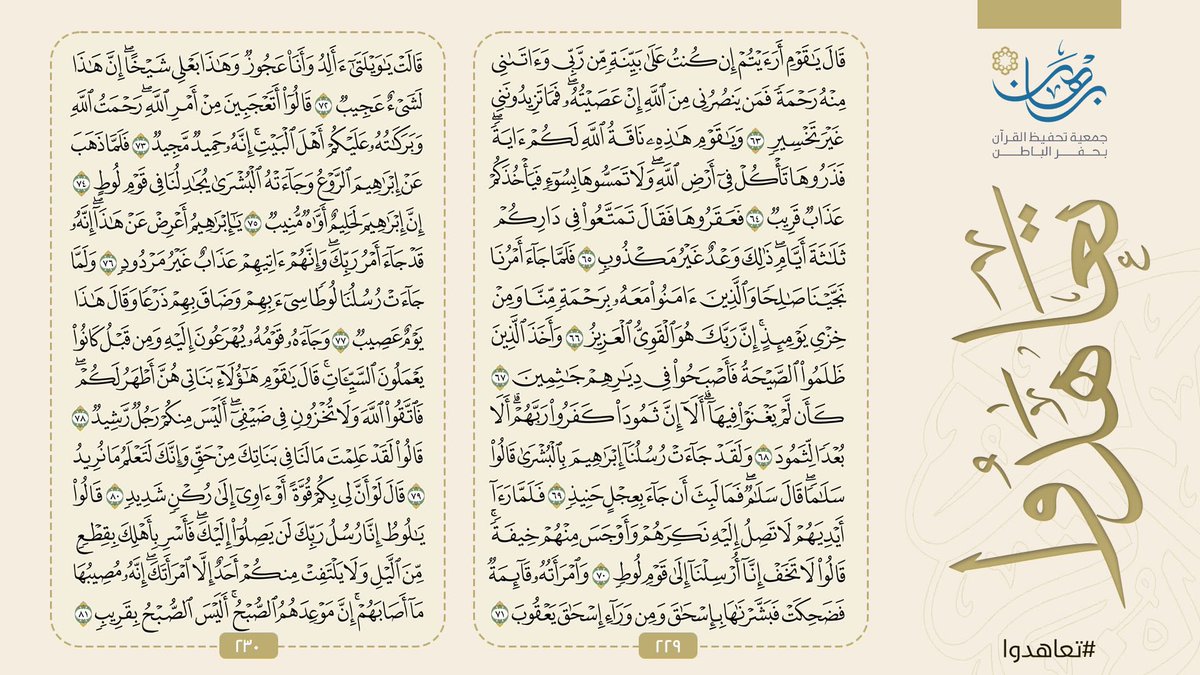 برهان
جمعية تحفيظ القرآن
بحفر الباطن
تعاهدوا
#تعاهدوا
قَالَ يَٰقَوْمِ أَرَءَيْتُمْ إِن كُنتُ عَلَىٰ بَيِّنَةٍ مِّن رَّبِّي وَءَاتَىٰنِي
مِنْهُ رَحْمَةً فَمَن يَنصُرُنِي مِنَ ٱللَّهِ إِنْ عَصَيْتُهُۥۖ فَمَا تَزِيدُونَنِي
غَيْرَ تَخْسِيرٍ ٦٣ وَيَٰقَوْمِ هَٰذِهِۦ نَاقَةُ ٱللَّهِ لَكُمْ ءَايَةًۖ
فَذَرُوهَا تَأْكُلْ فِيٓ أَرْضِ ٱللَّهِۖ وَلَا تَمَسُّوهَا بِسُوٓءٍ فَيَأْخُذَكُمْ
عَذَابٌ قَرِيبٌ ٦٤ فَعَقَرُوهَا فَقَالَ تَمَتَّعُوا۟ فِي دَارِكُمْ
ثَلَٰثَةَ أَيَّامٍۖ ذَٰلِكَ وَعْدٌ غَيْرُ مَكْذُوبٍ ٦٥ فَلَمَّا جَآءَ أَمْرُنَا
نَجَّيْنَا صَٰلِحًا وَٱلَّذِينَ ءَامَنُوا۟ مَعَهُۥ بِرَحْمَةٍ مِّنَّا وَمِنْ
خِزْيِ يَوْمِئِذٍۚ إِنَّ رَبَّكَ هُوَ ٱلْقَوِيُّ ٱلْعَزِيزُ ٦٦ وَأَخَذَ ٱلَّذِينَ
ظَلَمُوا۟ ٱلصَّيْحَةُ فَأَصْبَحُوا۟ فِي دِيَٰرِهِمْ جَٰثِمِينَ ٦٧
كَأَن لَّمْ يَغْنَوْا۟ فِيهَآۗ أَلَآ إِنَّ ثَمُودَا۟ كَفَرُوا۟ رَبَّهُمْۗ أَلَا
بُعْدًا لِّثَمُودَ ٦٨ وَلَقَدْ جَآءَتْ رُسُلُنَآ إِبْرَٰهِيمَ بِٱلْبُشْرَىٰ قَالُوا۟
سَلَٰمًاۖ قَالَ سَلَٰمٌۖ فَمَا لَبِثَ أَن جَآءَ بِعِجْلٍ حَنِيذٍ ٦٩ فَلَمَّا رَءَآ
أَيْدِيَهُمْ لَا تَصِلُ إِلَيْهِ نَكِرَهُمْ وَأَوْجَسَ مِنْهُمْ خِيفَةًۚ
قَالُوا۟ لَا تَخَفْ إِنَّآ أُرْسِلْنَآ إِلَىٰ قَوْمِ لُوطٍ ٧٠ وَٱمْرَأَتُهُۥ قَآئِمَةٌ
فَضَحِكَتْ فَبَشَّرْنَٰهَا بِإِسْحَٰقَ وَمِن وَرَآءِ إِسْحَٰقَ يَعْقُوبَ ٧١
٢٢٩
قَالَتْ يَٰوَيْلَتَىٰٓ ءَأَلِدُ وَأَنَا۠ عَجُوزٌ وَهَٰذَا بَعْلِي شَيْخًاۖ إِنَّ هَٰذَا
لَشَيْءٌ عَجِيبٌ ٧٢ قَالُوٓا۟ أَتَعْجَبِينَ مِنْ أَمْرِ ٱللَّهِۖ رَحْمَتُ ٱللَّهِ
وَبَرَكَٰتُهُۥ عَلَيْكُمْ أَهْلَ ٱلْبَيْتِۚ إِنَّهُۥ حَمِيدٌ مَّجِيدٌ ٧٣ فَلَمَّا ذَهَبَ
عَنْ إِبْرَٰهِيمَ ٱلرَّوْعُ وَجَآءَتْهُ ٱلْبُشْرَىٰ يُجَٰدِلُنَا فِي قَوْمِ لُوطٍ ٧٤
إِنَّ إِبْرَٰهِيمَ لَحَلِيمٌ أَوَّٰهٌ مُّنِيبٌ ٧٥ يَٰٓإِبْرَٰهِيمُ أَعْرِضْ عَنْ هَٰذَآۖ إِنَّهُۥ
قَدْ جَآءَ أَمْرُ رَبِّكَۖ وَإِنَّهُمْ ءَاتِيهِمْ عَذَابٌ غَيْرُ مَرْدُودٍ ٧٦ وَلَمَّا
جَآءَتْ رُسُلُنَا لُوطًا سِيٓءَ بِهِمْ وَضَاقَ بِهِمْ ذَرْعًا وَقَالَ هَٰذَا
يَوْمٌ عَصِيبٌ ٧٧ وَجَآءَهُۥ قَوْمُهُۥ يُهْرَعُونَ إِلَيْهِ وَمِن قَبْلُ كَانُوا۟
يَعْمَلُونَ ٱلسَّيِّـَٔاتِۚ قَالَ يَٰقَوْمِ هَٰٓؤُلَآءِ بَنَاتِي هُنَّ أَطْهَرُ لَكُمْۖ
فَٱتَّقُوا۟ ٱللَّهَ وَلَا تُخْزُونِ فِي ضَيْفِيٓۖ أَلَيْسَ مِنكُمْ رَجُلٌ رَّشِيدٌ ٧٨
قَالُوا۟ لَقَدْ عَلِمْتَ مَا لَنَا فِي بَنَاتِكَ مِنْ حَقٍّ وَإِنَّكَ لَتَعْلَمُ مَا نُرِيدُ
٧٩ قَالَ لَوْ أَنَّ لِي بِكُمْ قُوَّةً أَوْ ءَاوِيٓ إِلَىٰ رُكْنٍ شَدِيدٍ ٨٠ قَالُوا۟
يَٰلُوطُ إِنَّا رُسُلُ رَبِّكَ لَن يَصِلُوٓا۟ إِلَيْكَۖ فَأَسْرِ بِأَهْلِكَ بِقِطْعٍ
مِّنَ ٱلَّيْلِ وَلَا يَلْتَفِتْ مِنكُمْ أَحَدٌ إِلَّا ٱمْرَأَتَكَۖ إِنَّهُۥ مُصِيبُهَا
مَآ أَصَابَهُمْۚ إِنَّ مَوْعِدَهُمُ ٱلصُّبْحُۚ أَلَيْسَ ٱلصُّبْحُ بِقَرِيبٍ ٨١
٢٣٠